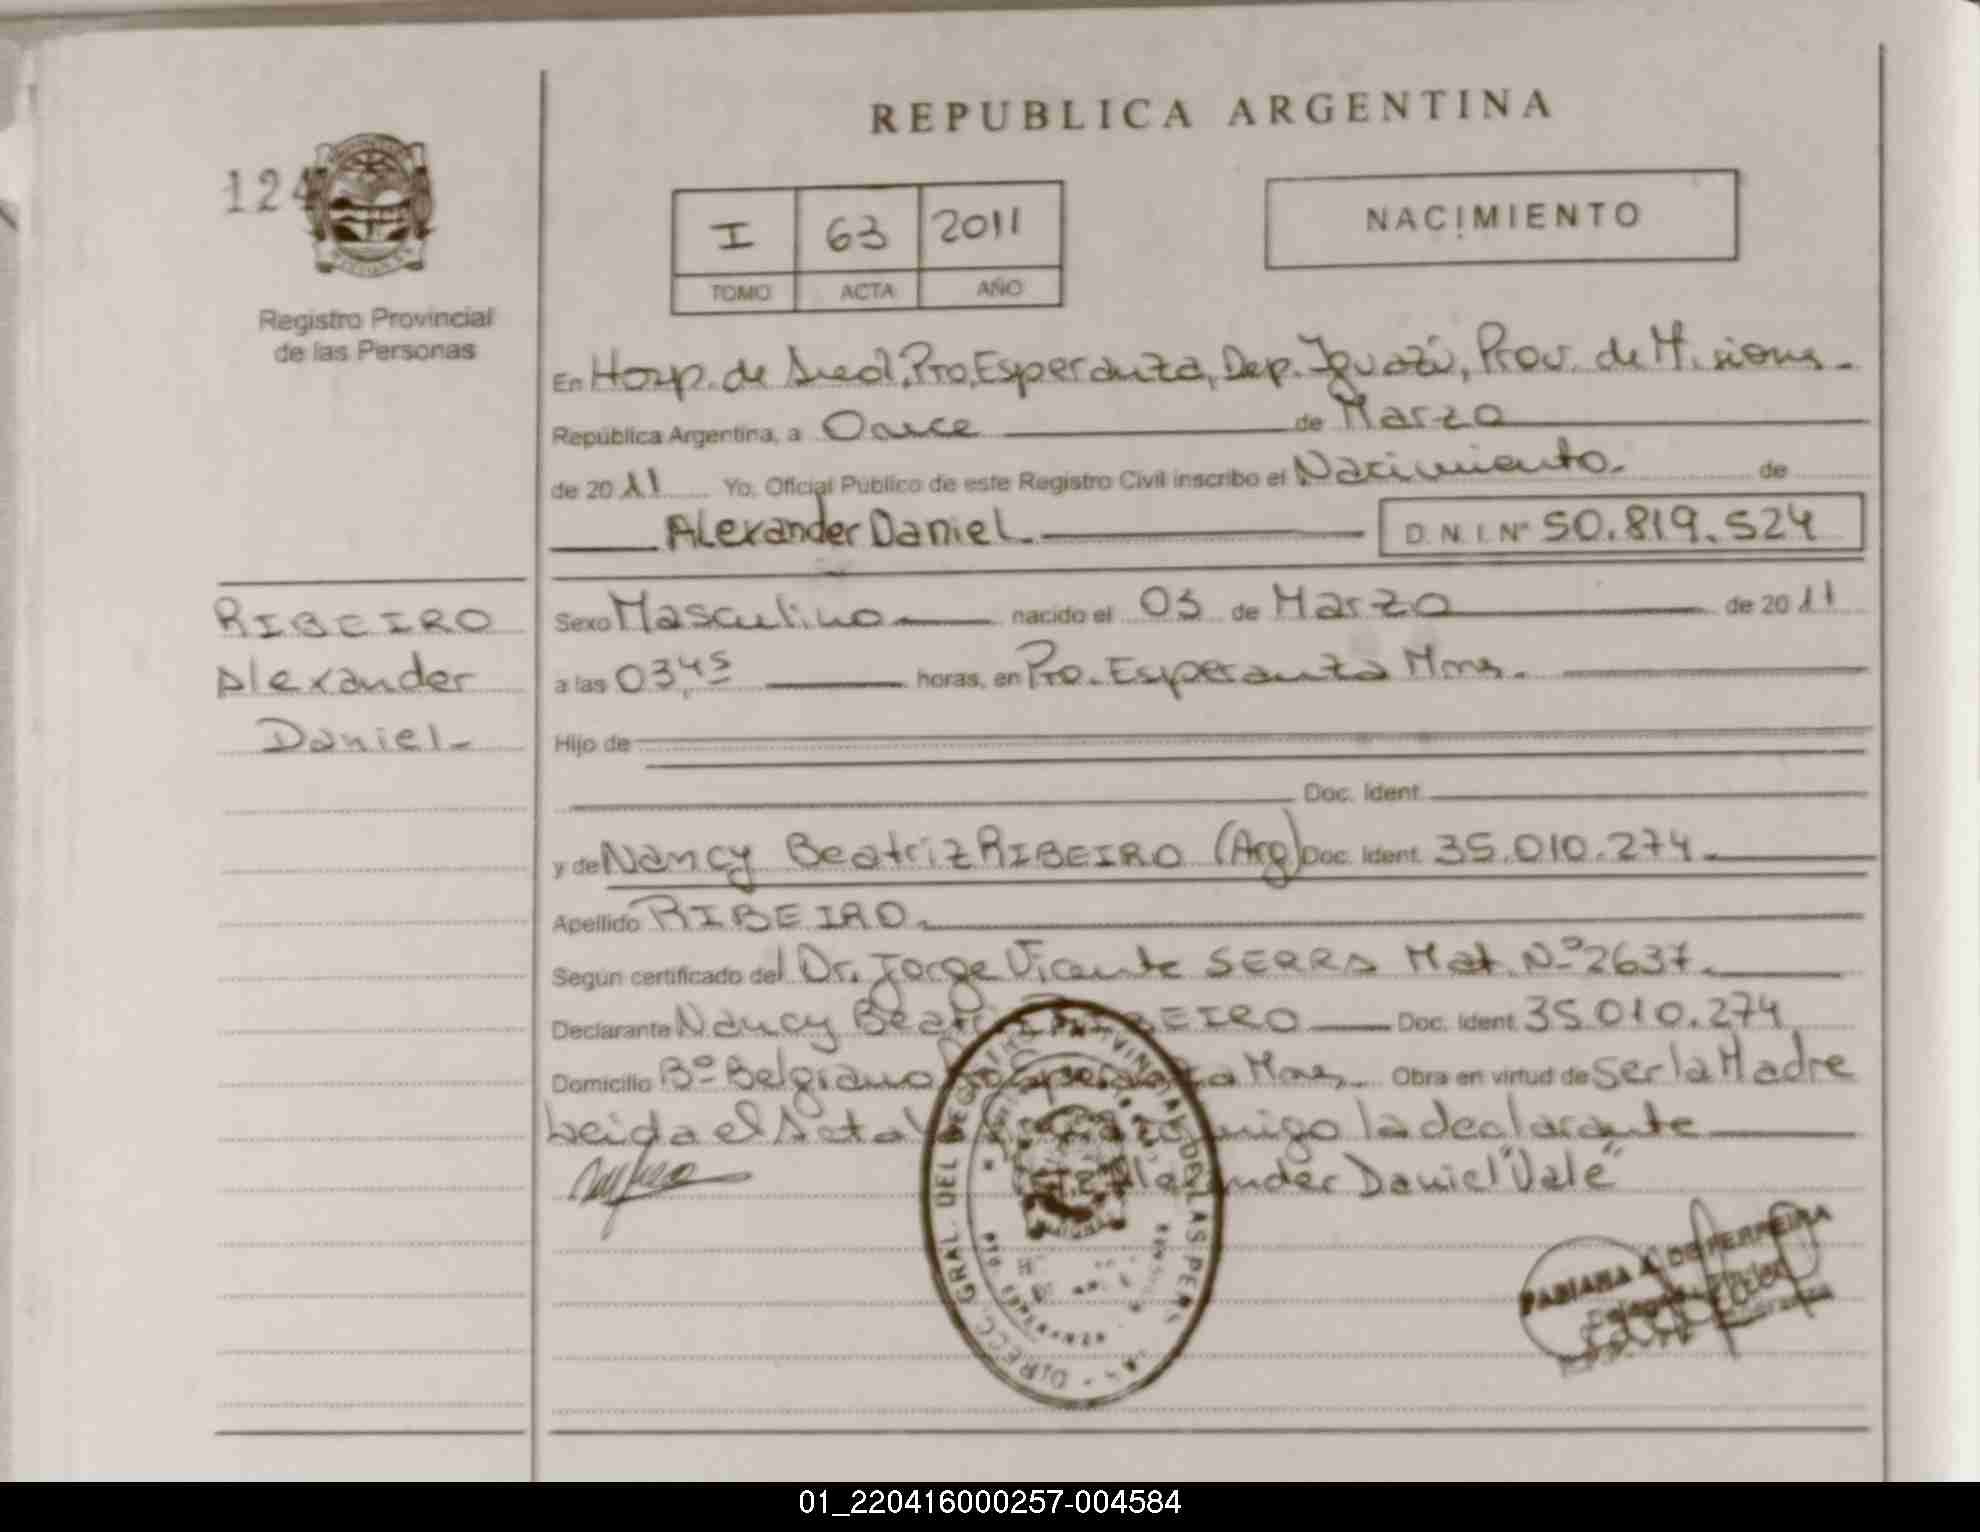 REPUBLICA ARGENTINA
124
I 63 2011
TOMO ACTA AÑO
NACIMIENTO
Registro Provincial
de las Personas
En Hosp. de Area, Pto, Esperanza, Dep. Iguazú, Prov. de Misiones.
República Argentina, a Once de Marzo
de 2011 Yo, Oficial Público de este Registro Civil inscribo el Nacimiento. de
Alexander Daniel. D.N.I. Nº 50.819.524
RIBEIRO
Alexander
Daniel.
Sexo Masculino nacido el 03 de Marzo de 2011
a las 03,45 horas, en Pto. Esperanza Mnes.
Hijo de
Doc. Ident.
y de Nancy Beatriz RIBEIRO (Arg) Doc. Ident. 35.010.274.
Apellido RIBEIRO.
Según certificado del Dr. Jorge Vicente SERRA Mat. Nº 2637.
Declarante Nancy Doc. Ident. 35.010.274
Domicilio Bº Belgrano Mnes. Obra en virtud de Ser la Madre
Leida el Acta la declarante
Daniel "Vale"
DIRECC. GRAL. DEL DE LAS PERS
FABIANA A. DE FERREIRA
01_220416000257-004584